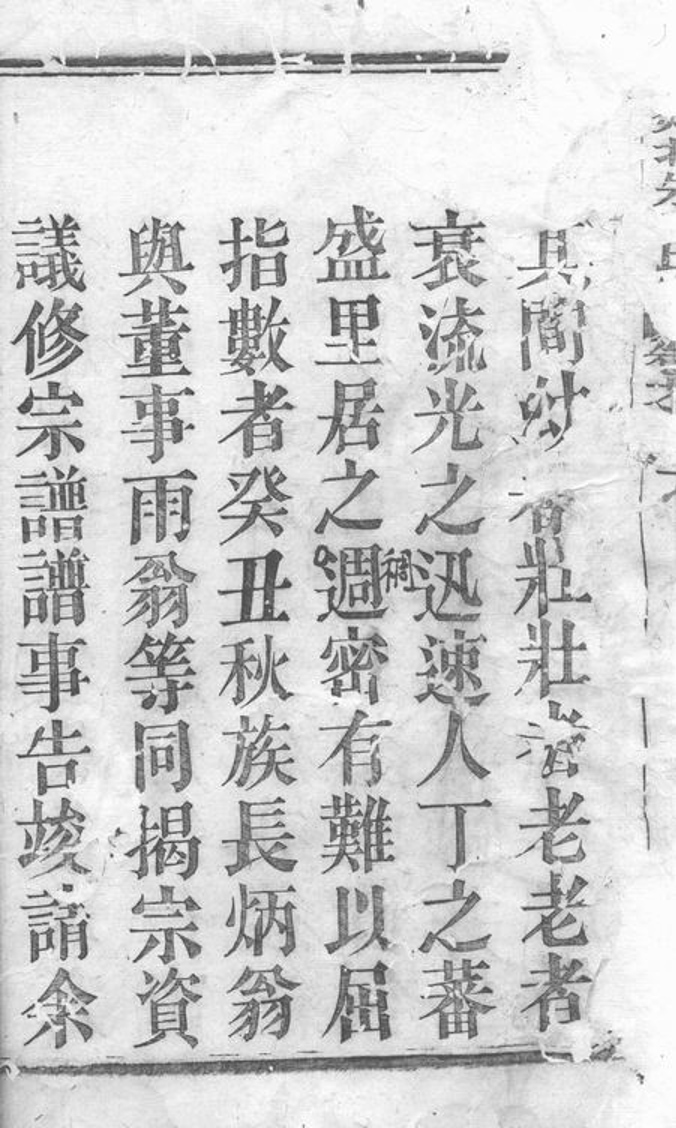 其間幼者壯壯者老老者
衰流光之迅速人丁之蕃
盛里居之週密有難以屈
稠
指數者癸丑秋族長炳翁
與董事雨翁等同揭宗資
議修宗譜譜事告竣請余